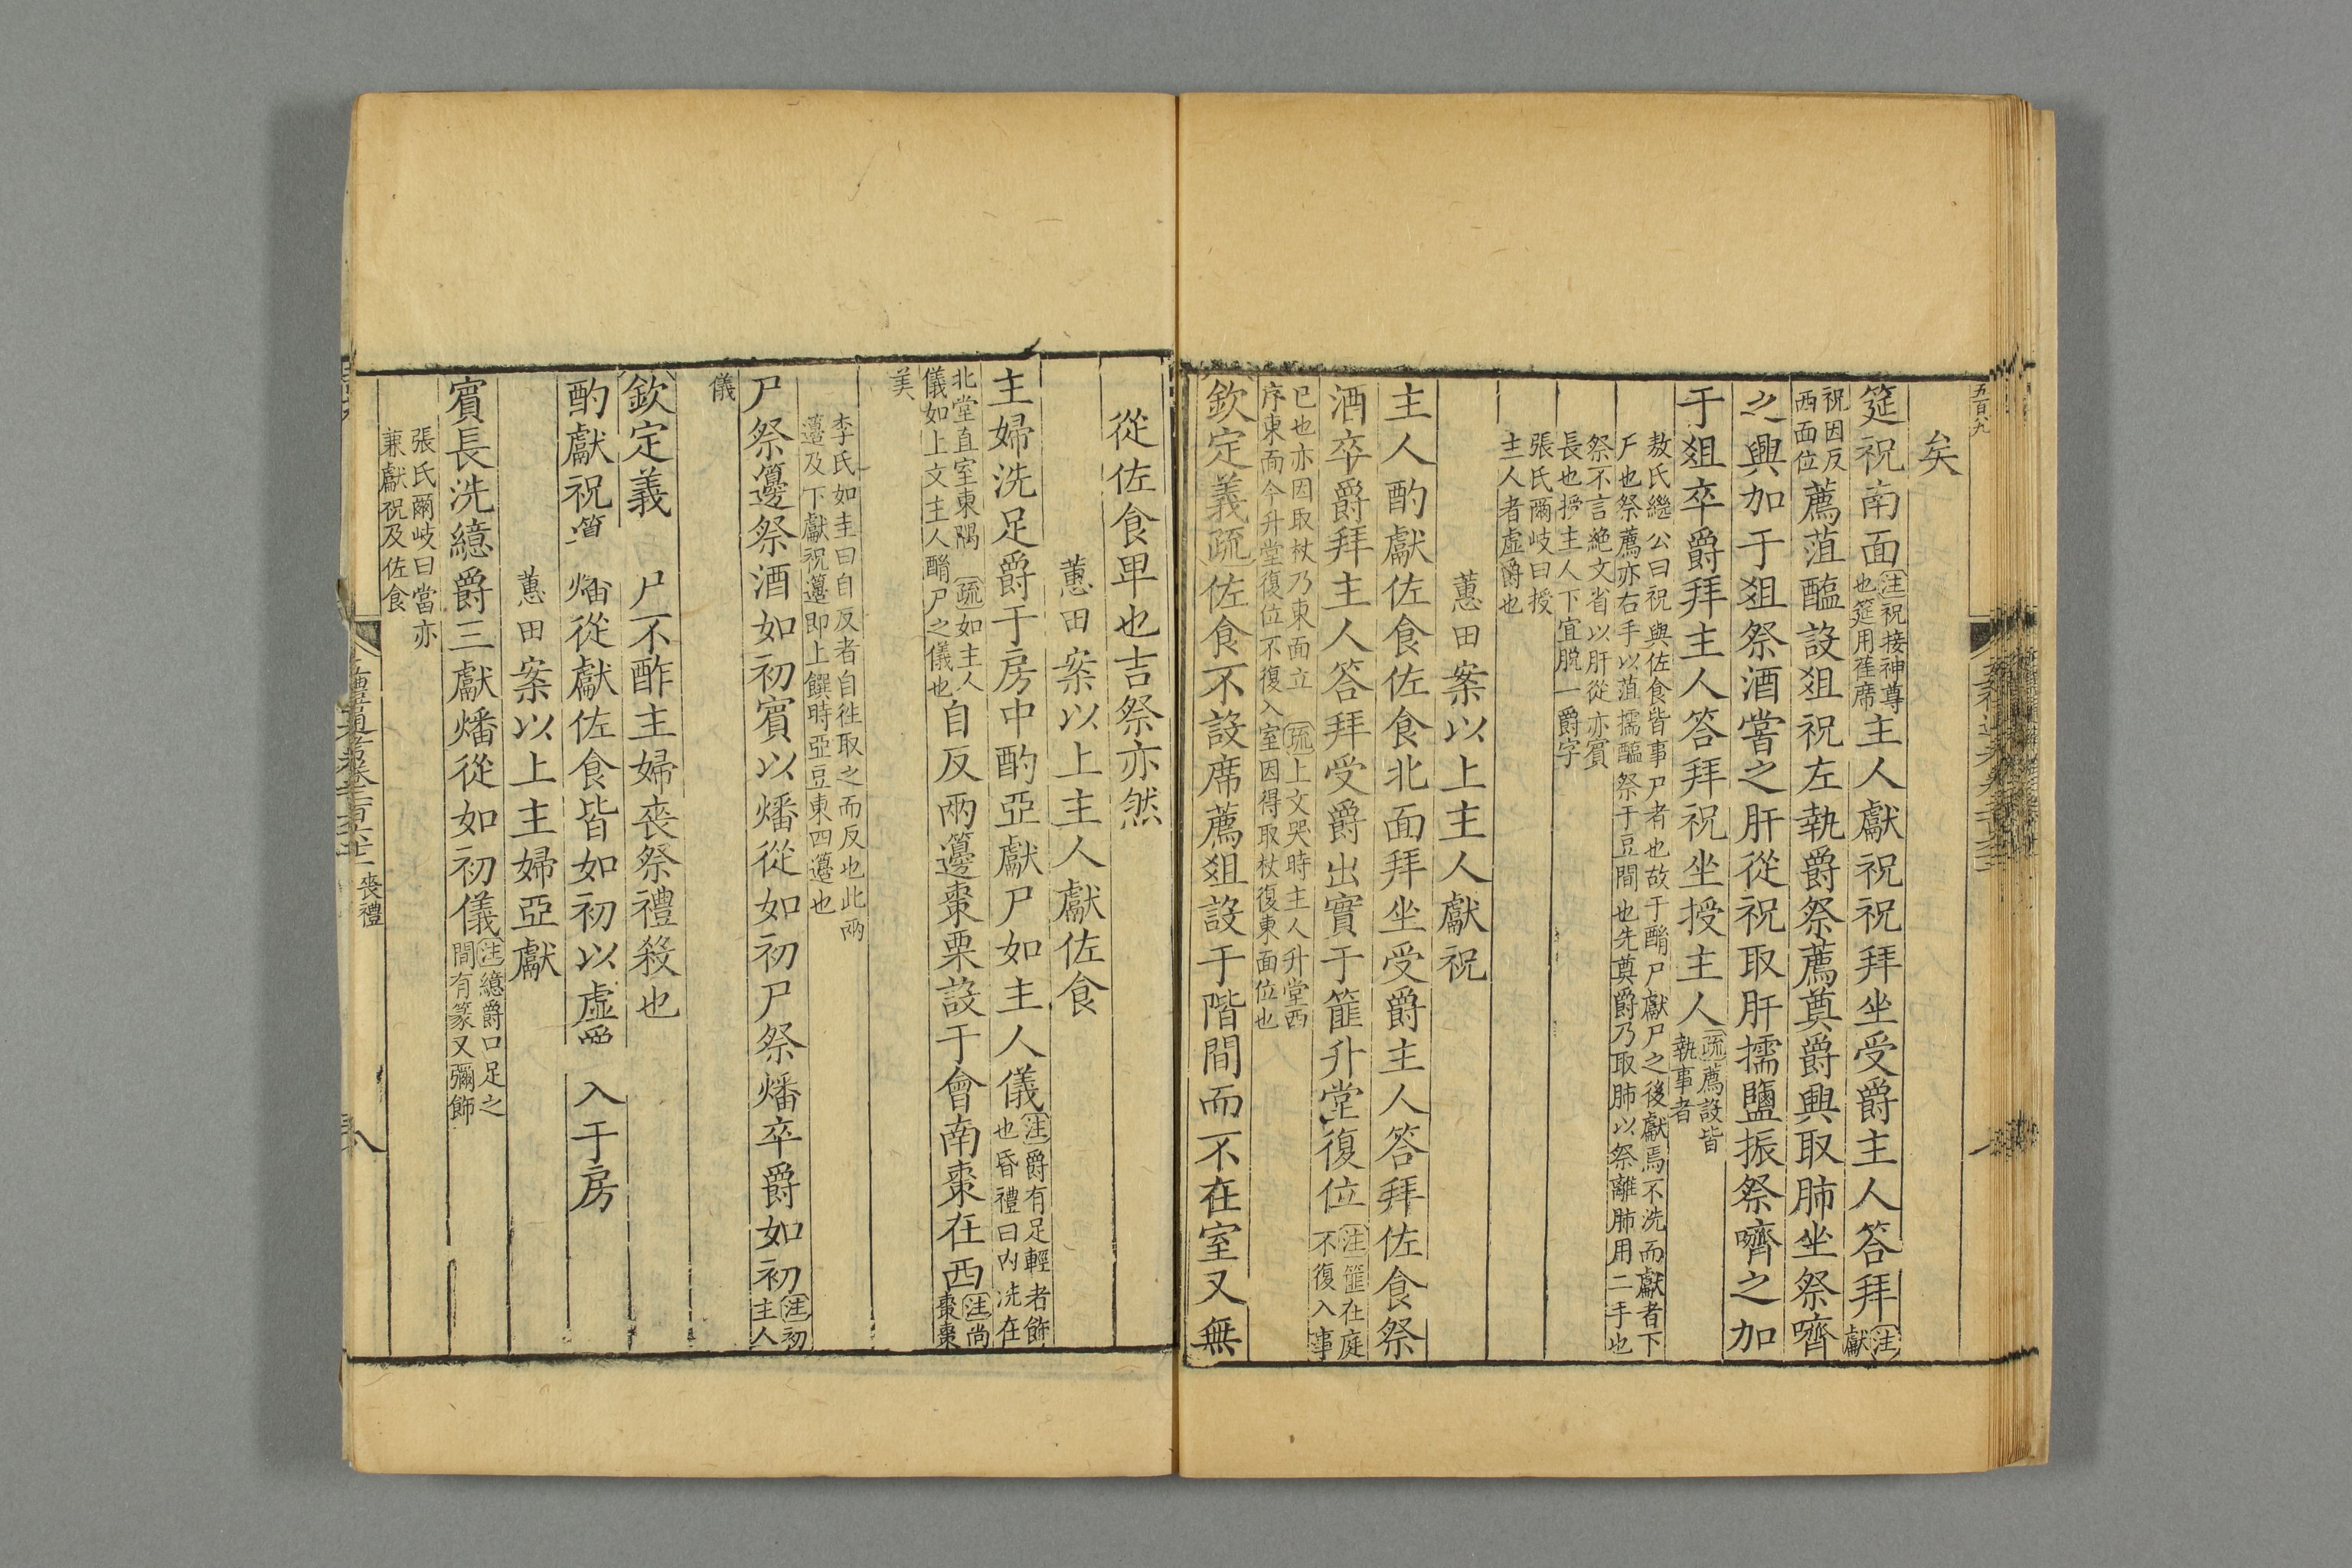 五百九
矣
筵祝南面注祝接神尊也筵用萑席主人獻祝祝拜坐受爵主人答拜注獻
祝因反西面位薦菹醢設俎祝左執爵祭薦奠爵興取肺坐祭嚌
之興加于俎祭酒嘗之肝從祝取肝擩鹽振祭嚌之加
于俎卒爵拜主人答拜祝坐授主人疏薦設皆執事者
敖氏繼公曰祝與佐食皆事尸者也故于酳尸獻尸之後獻焉不洗而獻者下
尸也祭薦亦右手以菹擩醢祭于豆間也先奠爵乃取肺以祭離肺用二手也
祭不言絶文省以肝從亦賓
長也授主人下宜脫一爵字
張氏爾岐曰授
主人者虛爵也
蕙田案以上主人獻祝
主人酌獻佐食佐食北面拜坐受爵主人答拜佐食祭
酒卒爵拜主人答拜受爵出實于篚升堂復位注篚在庭不復入事
已也亦因取杖乃東面立疏上文哭時主人升堂西
序東面今升堂復位不復入室因得取杖復東面位也
欽定義疏佐食不設席薦俎設于階間而不在室又無
從佐食卑也吉祭亦然
蕙田案以上主人獻佐食
主婦洗足爵于房中酌亞獻尸如主人儀注爵有足輕者飾也昏禮曰內洗在
北堂直室東隅疏如主人儀如上文主人酳尸之儀也自反兩籩棗栗設于會南棗在西注尚棗棗
美
李氏如圭曰自反者自往取之而反也此兩
籩及下獻祝籩即上饌時亞豆東四籩也
尸祭籩祭酒如初賓以燔從如初尸祭燔卒爵如初注初主人
儀
欽定義尸不酢主婦喪祭禮殺也
酌獻祝燔從獻佐食皆如初以虛入于房
蕙田案以上主婦亞獻
賓長洗繶爵三獻燔從如初儀注繶爵口足之間有篆又彌飾
張氏爾岐曰當亦
兼獻祝及佐食
喪禮
八